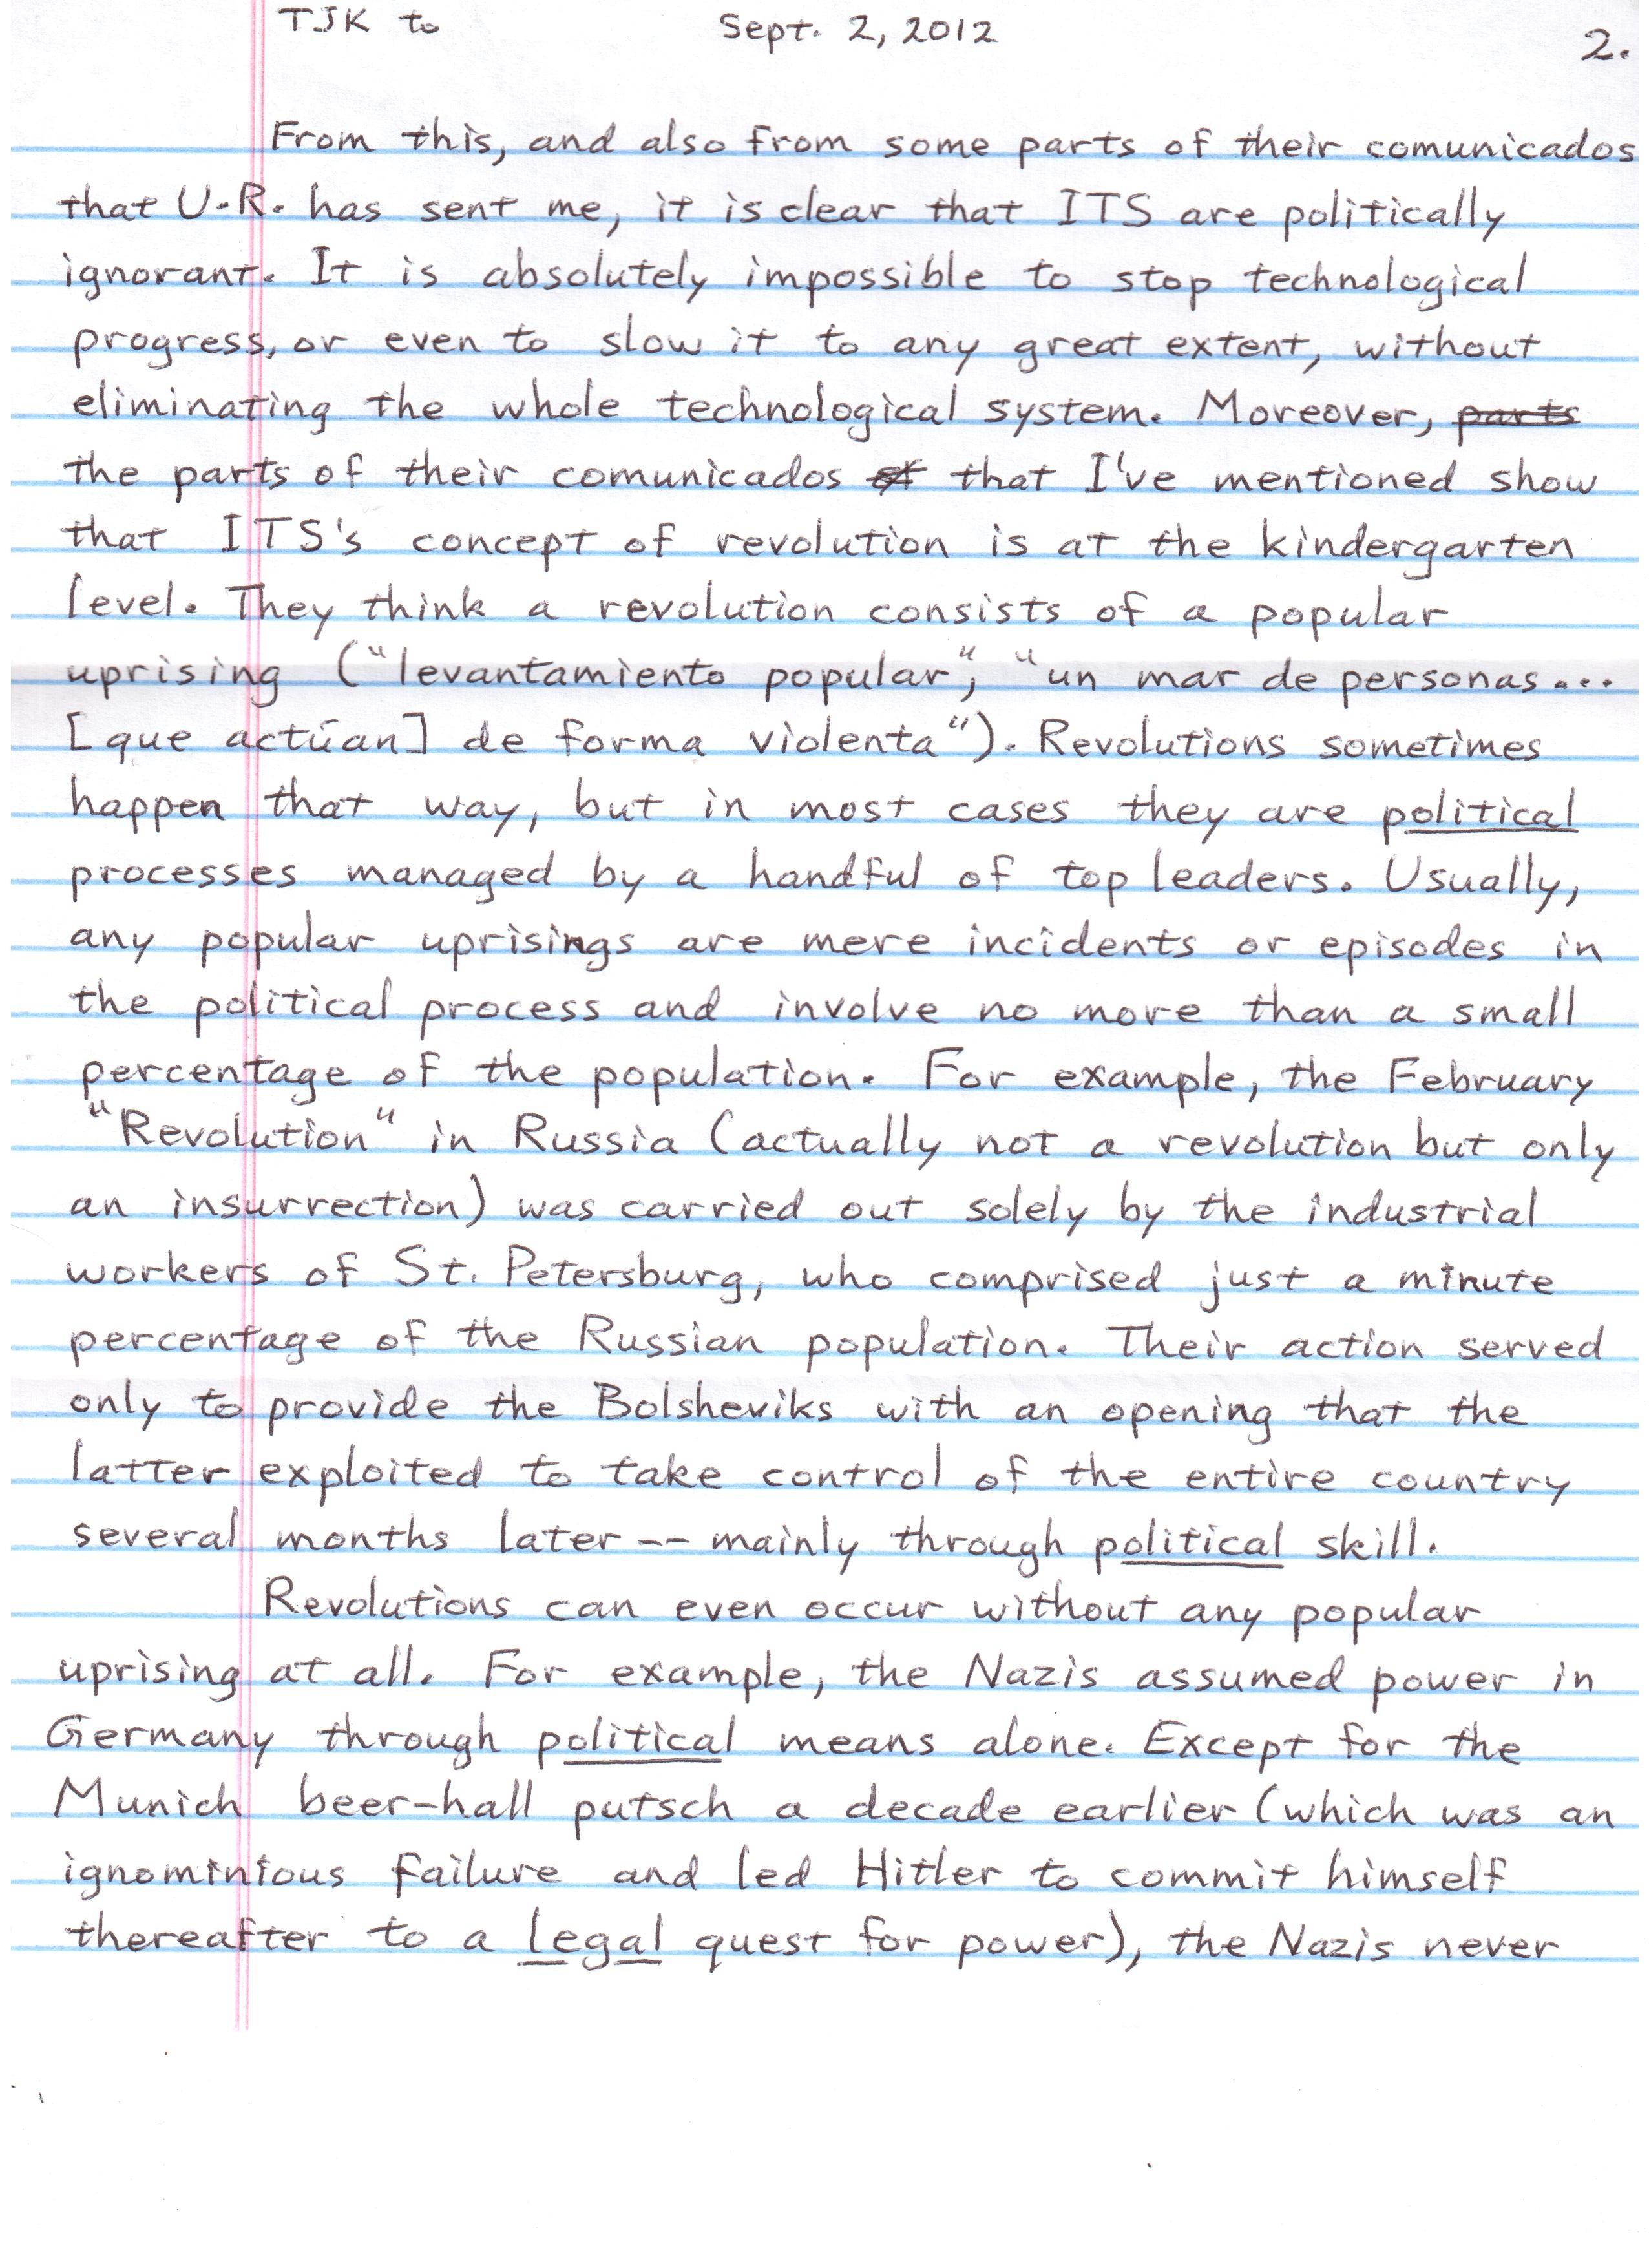 TJK to Sept. 2, 2012 2.
From this, and also from some parts of their comunicados
that U.R. has sent me, it is clear that ITS are politically
ignorant. It is absolutely impossible to stop technological
progress, or even to slow it to any great extent, without
eliminating the whole technological system. Moreover, parts
the parts of their comunicados of that I've mentioned show
that ITS's concept of revolution is at the kindergarten
level. They think a revolution consists of a popular
uprising ("levantamiento popular", "un mar de personas...
[que actúan] de forma violenta"). Revolutions sometimes
happen that way, but in most cases they are political
processes managed by a handful of top leaders. Usually,
any popular uprisings are mere incidents or episodes in
the political process and involve no more than a small
percentage of the population. For example, the February
"Revolution" in Russia (actually not a revolution but only
an insurrection) was carried out solely by the industrial
workers of St. Petersburg, who comprised just a minute
percentage of the Russian population. Their action served
only to provide the Bolsheviks with an opening that the
latter exploited to take control of the entire country
several months later -- mainly through political skill.
Revolutions can even occur without any popular
uprising at all. For example, the Nazis assumed power in
Germany through political means alone. Except for the
Munich beer-hall putsch a decade earlier (which was an
ignominious failure and led Hitler to commit himself
thereafter to a legal quest for power), the Nazis never